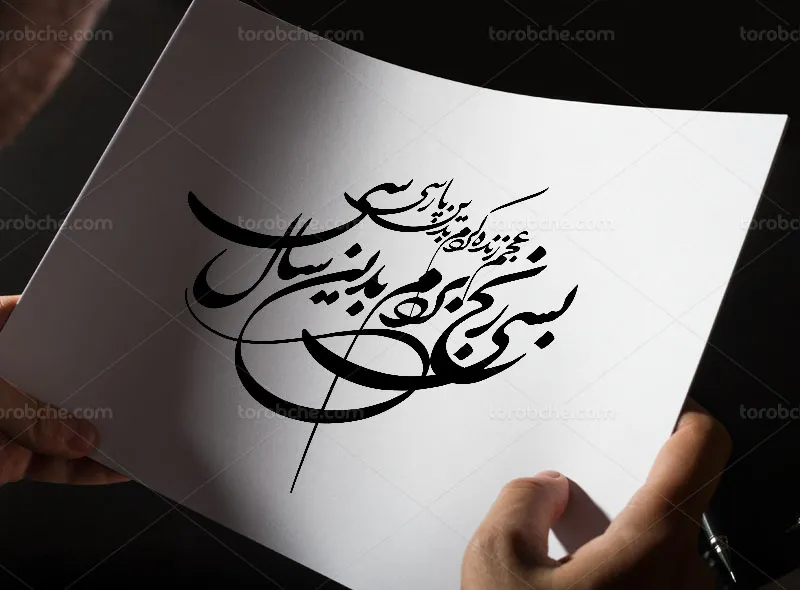 بسی رنج بردم بدین سال سی
عجم زنده کردم بدین پارسی
torobche.com torobche.com torobche.com torobche.com
torobche.com torobche.com torobche.com torobche.com
torobche.com torobche.com torobche.com torobche.com